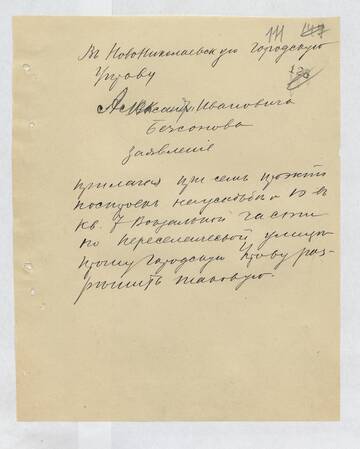 111 147
136
Въ Новониколаевскую Городскую
Управу
Александр. Ивановича
Безсонова
Заявление
прилагая при семъ проэктъ
построекъ на усадьбы № 13 в
кв. 7 Вокзальной части
по переселенческой улицы
прошу Городскую Управу раз-
решить таковую.